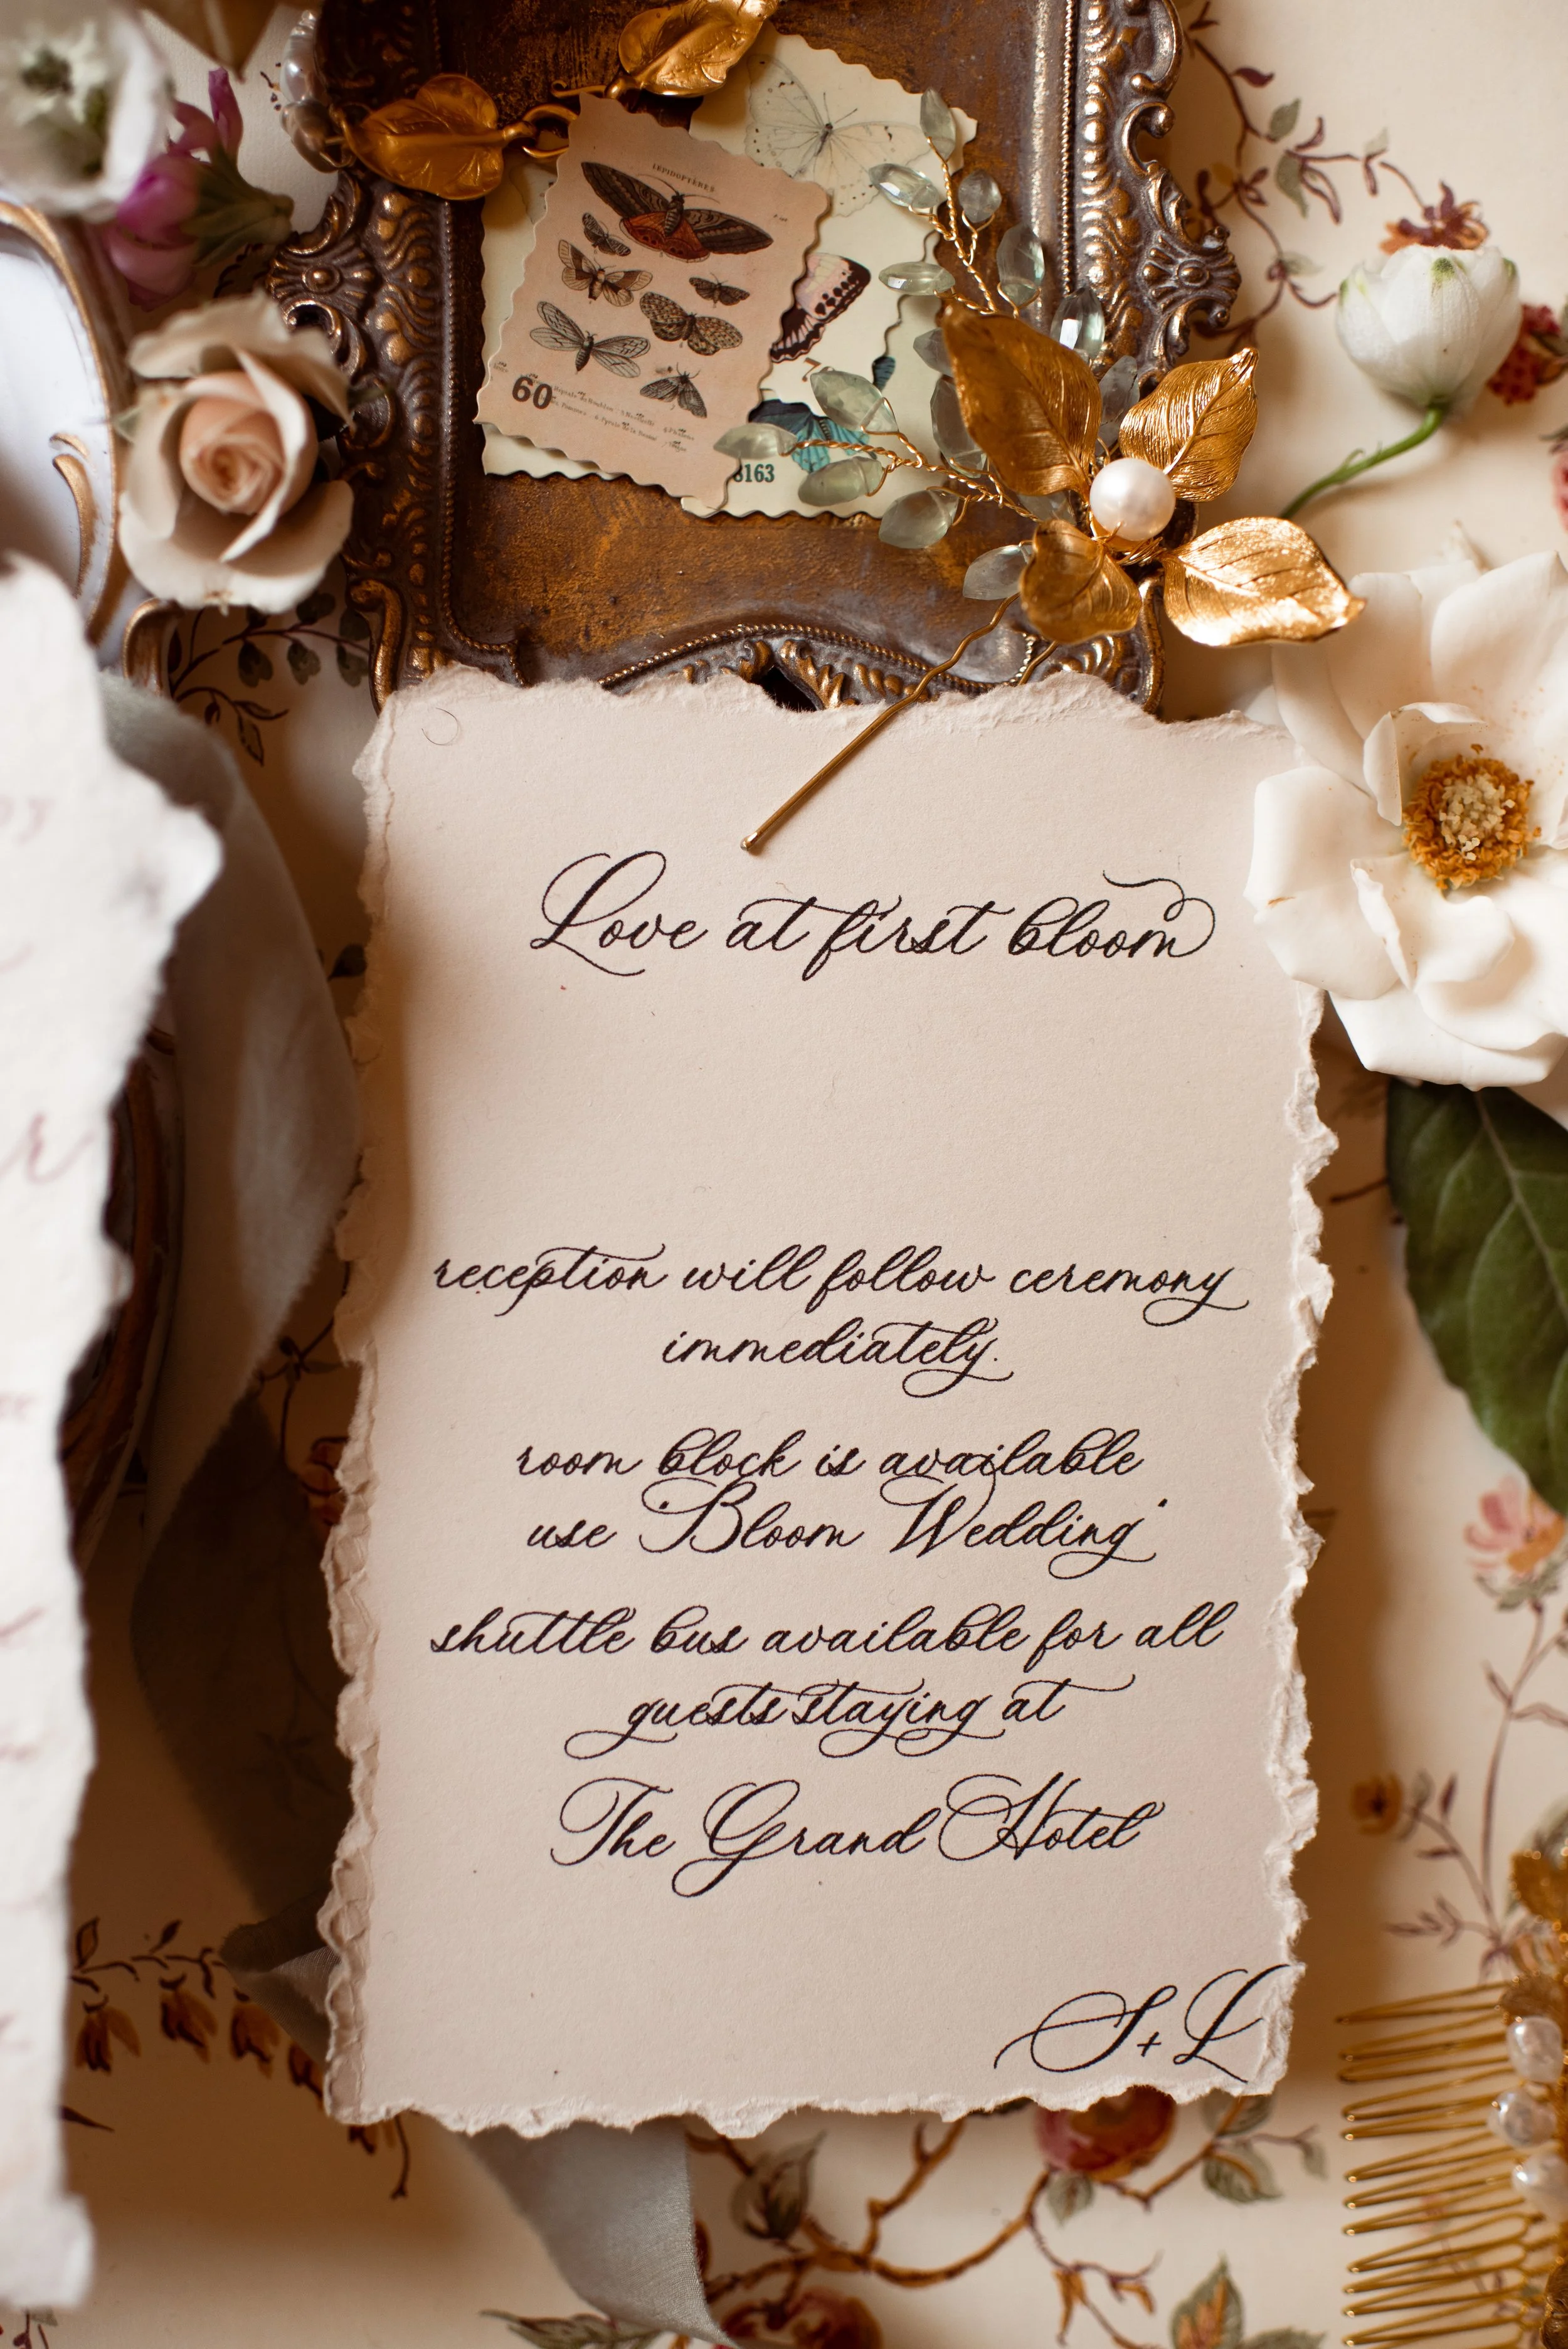 LÉPIDOPTÈRES
60
8163
Love at first bloom
reception will follow ceremony
immediately.
room block is available
use "Bloom Wedding"
shuttle bus available for all
guests staying at
The Grand Hotel
S+L